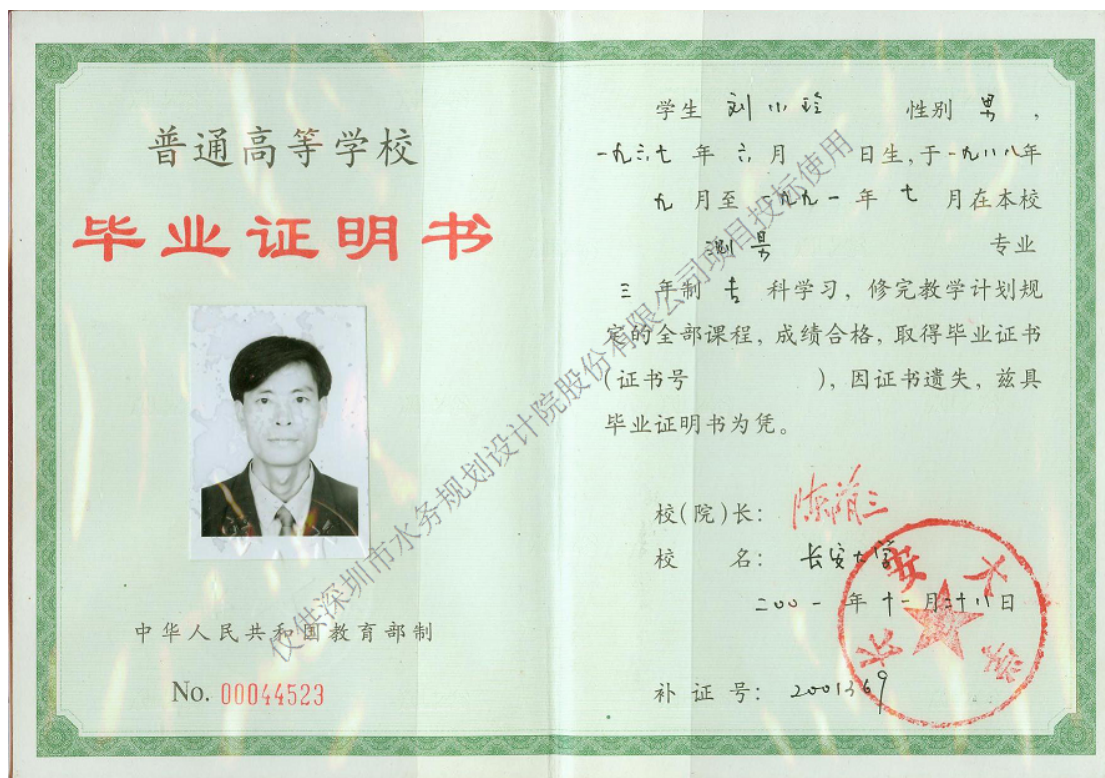 普通高等学校
毕业证明书
中华人民共和国教育部制
No. 00044523
学生 刘小玲 性别 男，
一九六七 年 六 月 日生，于一九八八年
九 月至 一九九一 年 七 月在本校
测量 专业
三 年制 专 科学习，修完教学计划规
定的全部课程，成绩合格，取得毕业证书
（证书号 ），因证书遗失，兹具
毕业证明书为凭。
校（院）长：
校 名： 长安大学
二00一 年 十一 月二十八日
补 证 号： 2001369
长安大学
仅供深圳市水务规划设计院股份有限公司项目投标使用